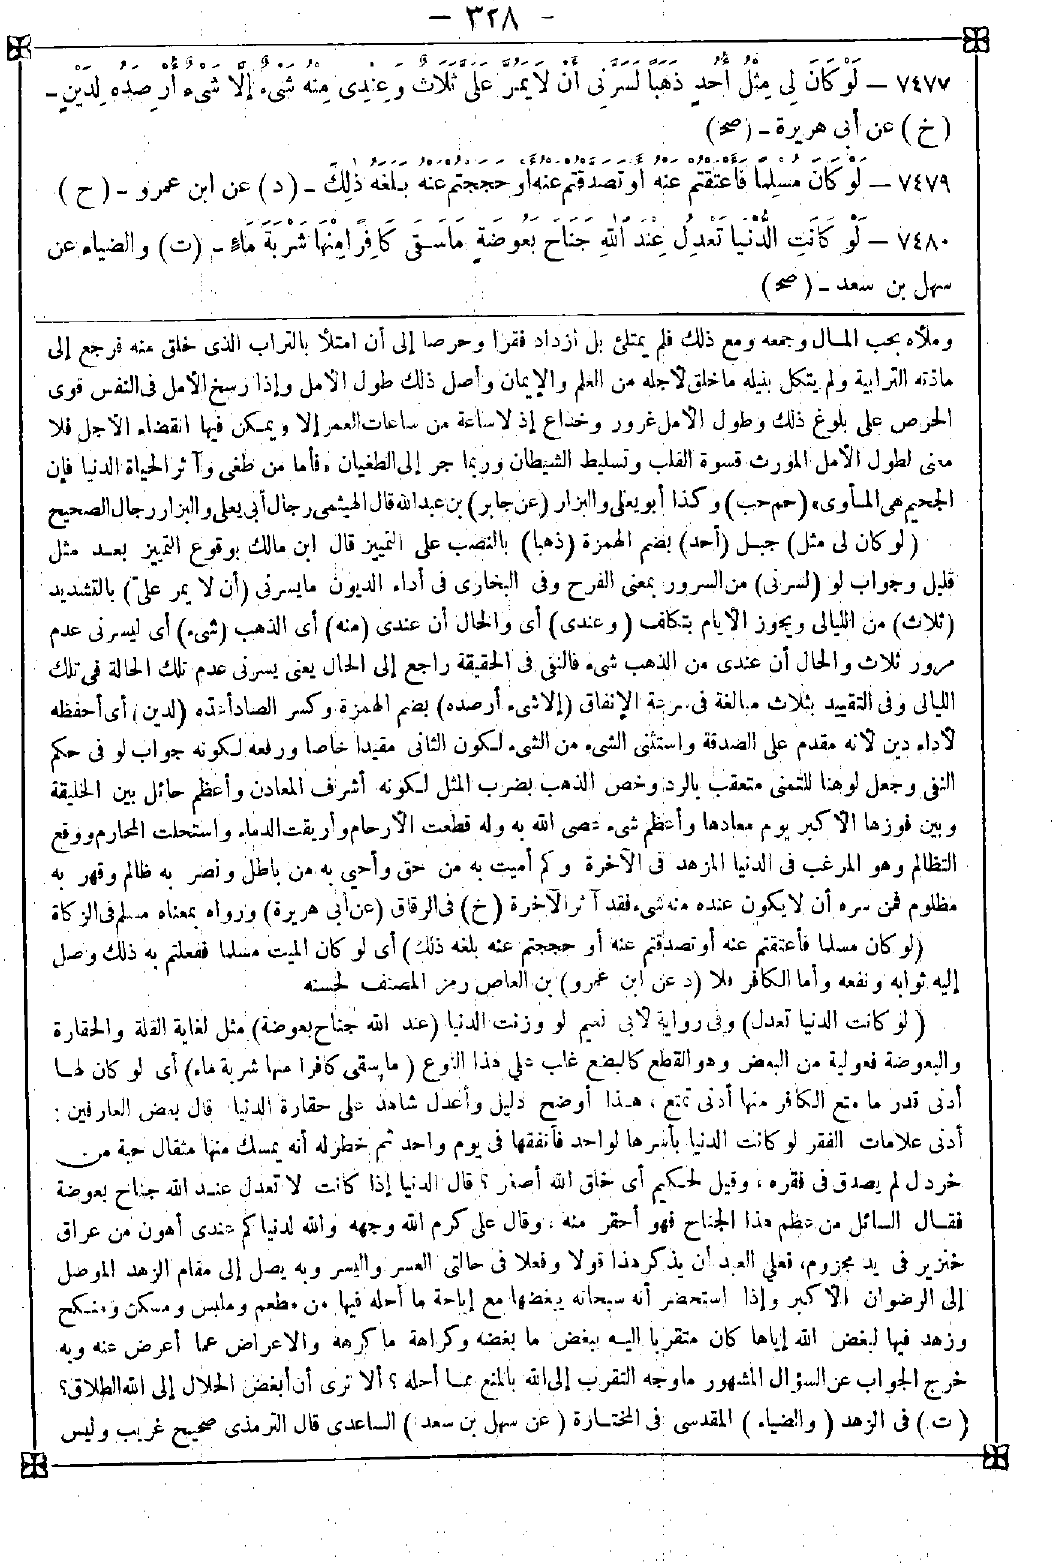 - ٣٢٨ -
٧٤٧٧ - لَوْ كَانَ لِى مِثْلُ أُحُدٍ ذَهَبًا لَسَرَّنِى أَنْ لَا يَمُرَّ عَلَىَّ ثَلَاثٌ وَعِنْدِى مِنْهُ شَىْءٌ إِلَّا شَىْءٌ أُرْصِدُهُ لِدَيْنٍ -
(خ) عن أبى هريرة - (صح)
٧٤٧٩ - لَوْ كَانَ مُسْلِمًا فَأَعْتَقْتُمْ عَنْهُ أَوْ تَصَدَّقْتُمْ عَنْهُ أَوْ حَجَجْتُمْ عَنْهُ بَلَغَهُ ذٰلِكَ - (د) عن ابن عمرو - (ح)
٧٤٨٠ - لَوْ كَانَتِ الدُّنْيَا تَعْدِلُ عِنْدَ اللهِ جَنَاحَ بَعُوضَةٍ مَاسَقَى كَافِرًا مِنْهَا شَرْبَةَ مَاءٍ - (ت) والضياء عن
سهل بن سعد - (صح)
وملآه بحب المال وجمعه ومع ذلك فلم يمتلئ بل ازداد فقرا وحرصا إلى أن امتلأ بالتراب الذى خلق منه فرجع إلى
مادته الترابية ولم يتكل بنيله ماخلق لأجله من العلم والإيمان وأصل ذلك طول الأمل وإذا رسخ الأمل فى النفس قوى
الحرص على بلوغ ذلك وطول الأمل غرور وخداع إذ لاساعة من ساعات العمر إلا ويمكن فيها انقضاء الأجل فلا
معنى لطول الأمل المورث قسوة القلب وتسليط الشيطان وربما جر إلى الطغيان «فأما من طغى وآثر الحياة الدنيا فإن
الجحيم هى المأوى» (حم حب) وكذا أبو يعلى والبزار (عن جابر) بن عبد الله قال الهيثمى رجال أبى يعلى والبزار رجال الصحيح
(لو كان لى مثل) جبل (أحد) بضم الهمزة (ذهبا) بالنصب على التمييز قال ابن مالك بوقوع التمييز بعد مثل
قليل وجواب لو (لسرنى) من السرور بمعنى الفرح وفى البخارى فى أداء الديون مايسرنى (أن لا يمر علىّ) بالتشديد
(ثلاث) من الليالى ويجوز الأيام بتكلف (وعندى) أى والحال أن عندى (منه) أى الذهب (شىء) أى ليسرنى عدم
مرور ثلاث والحال أن عندى من الذهب شىء فالنفى فى الحقيقة راجع إلى الحال يعنى يسرنى عدم تلك الحالة فى تلك
الليالى وفى التقييد بثلاث مبالغة فى سرعة الإنفاق (إلا شىء أرصده) بضم الهمزة وكسر الصاد أعده (لدين) أى أحفظه
لأداء دين لأنه مقدم على الصدقة واستثنى الشىء من الشىء لكون الثانى مقيدا خاصا ورفعه لكونه جواب لو فى حكم
النفى وجعل لو هنا للتمنى متعقب بالرد وخص الذهب بضرب المثل لكونه أشرف المعادن وأعظم حائل بين الخليقة
وبين فوزها الأكبر يوم معادها وأعظم شىء عصى الله به وله قطعت الأرحام وأريقت الدماء واستحلت المحارم ووقع
التظالم وهو المرغب فى الدنيا المزهد فى الآخرة وكم أميت به من حق وأحيي به من باطل ونصر به ظالم وقهر به
مظلوم فمن سره أن لا يكون عنده منه شىء فقد آثر الآخرة (خ) فى الرقاق (عن أبى هريرة) ورواه بمعناه مسلم فى الزكاة
(لو كان مسلما فأعتقتم عنه أو تصدقتم عنه أو حججتم عنه بلغه ذلك) أى لو كان الميت مسلما ففعلتم به ذلك وصل
إليه ثوابه ونفعه وأما الكافر فلا (د عن ابن عمرو) بن العاص رمز المصنف لحسنه
(لو كانت الدنيا تعدل) وفى رواية لأبى نعيم لو وزنت الدنيا (عند الله جناح بعوضة) مثل لغاية القلة والحقارة
والبعوضة فعولة من البعض وهو القطع كالبضع غلب على هذا النوع (ما سقى كافرا منها شربة ماء) أى لو كان لها
أدنى قدر ما متع الكافر منها أدنى تمتع، هذا أوضح دليل وأعدل شاهد على حقارة الدنيا قال بعض العارفين:
أدنى علامات الفقر لو كانت الدنيا بأسرها لواحد فأنفقها فى يوم واحد ثم خطر له أنه يمسك منها مثقال حبة من
خردل لم يصدق فى فقره، وقيل لحكيم أى خلق الله أصغر؟ قال الدنيا إذا كانت لا تعدل عند الله جناح بعوضة
فقال السائل من عظم هذا الجناح فهو أحقر منه، وقال على كرم الله وجهه والله لدنياكم عندى أهون من عراق
خنزير فى يد مجزوم، فعلى العبد أن يذكر هذا قولا وفعلا فى حالتى العسر واليسر وبه يصل إلى مقام الزهد الموصل
إلى الرضوان الأكبر وإذا استحضر أنه سبحانه يبغضها مع إباحة ما أحله فيها من مطعم وملبس ومسكن ومنكح
وزهد فيها لبغض الله إياها كان متقربا إليه ببغض ما بغضه وكراهة ما كرهه والاعراض عما أعرض عنه وبه
خرج الجواب عن السؤال المشهور ماوجه التقرب إلى الله بالمنع مما أحله؟ ألا ترى أن أبغض الحلال إلى الله الطلاق؟
(ت) فى الزهد (والضياء) المقدسى فى المختارة (عن سهل بن سعد) الساعدى قال الترمذى صحيح غريب وليس